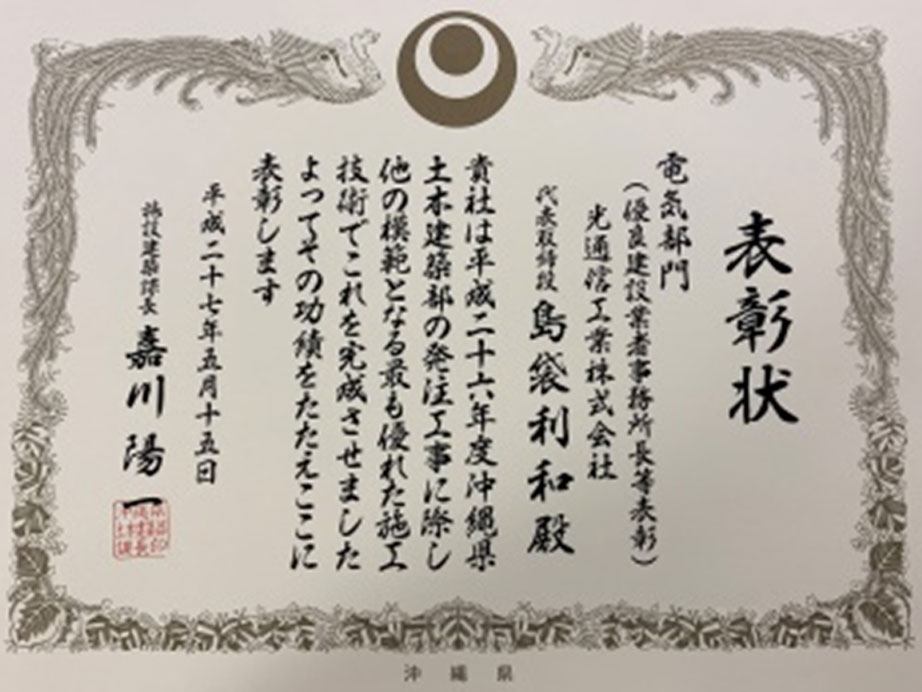 表彰状
電気部門
(優良建設業者事務所長等表彰)
光通信工業株式会社
代表取締役 島袋利和殿
貴社は平成二十六年度沖縄県
土木建築部の発注工事に際し
他の模範となる最も優れた施工
技術でこれを完成させました
よってその功績をたたえここに
表彰します
平成二十七年五月十五日
施設建築課長 嘉川陽一
沖縄県